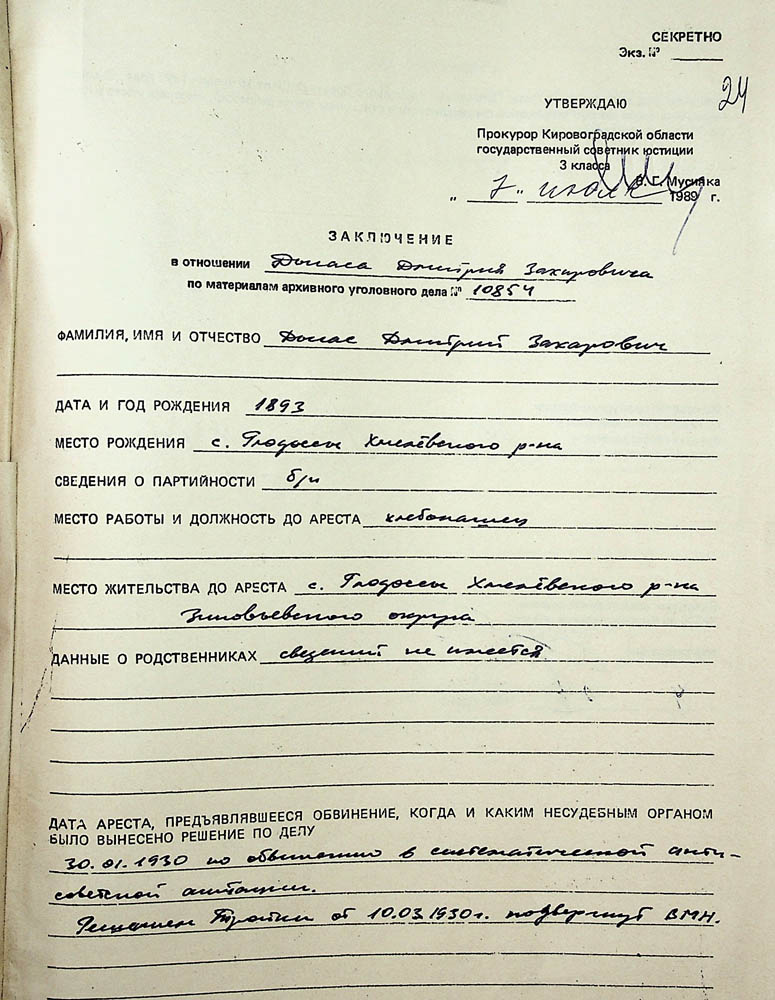 СЕКРЕТНО
Экз. №
24
УТВЕРЖДАЮ
Прокурор Кировоградской области
государственный советник юстиции
3 класса
В. Г. Мусияка
„ 7 " июля 1989 г.
ЗАКЛЮЧЕНИЕ
в отношении Донаса Дмитрия Захаровича
по материалам архивного уголовного дела № 10854
ФАМИЛИЯ, ИМЯ И ОТЧЕСТВО Донас Дмитрий Захарович
ДАТА И ГОД РОЖДЕНИЯ 1893
МЕСТО РОЖДЕНИЯ с. Глодоссы Хмелёвского р-на
СВЕДЕНИЯ О ПАРТИЙНОСТИ б/п
МЕСТО РАБОТЫ И ДОЛЖНОСТЬ ДО АРЕСТА хлебопашец
МЕСТО ЖИТЕЛЬСТВА ДО АРЕСТА с. Глодоссы Хмелёвского р-на
Зиновьевского округа
ДАННЫЕ О РОДСТВЕННИКАХ сведений не имеется
ДАТА АРЕСТА, ПРЕДЪЯВЛЯВШЕЕСЯ ОБВИНЕНИЕ, КОГДА И КАКИМ НЕСУДЕБНЫМ ОРГАНОМ
БЫЛО ВЫНЕСЕНО РЕШЕНИЕ ПО ДЕЛУ
30.01.1930 по обвинению в систематической анти-
советской агитации.
Решением Тройки от 10.03.1930г. подвергнут ВМН.